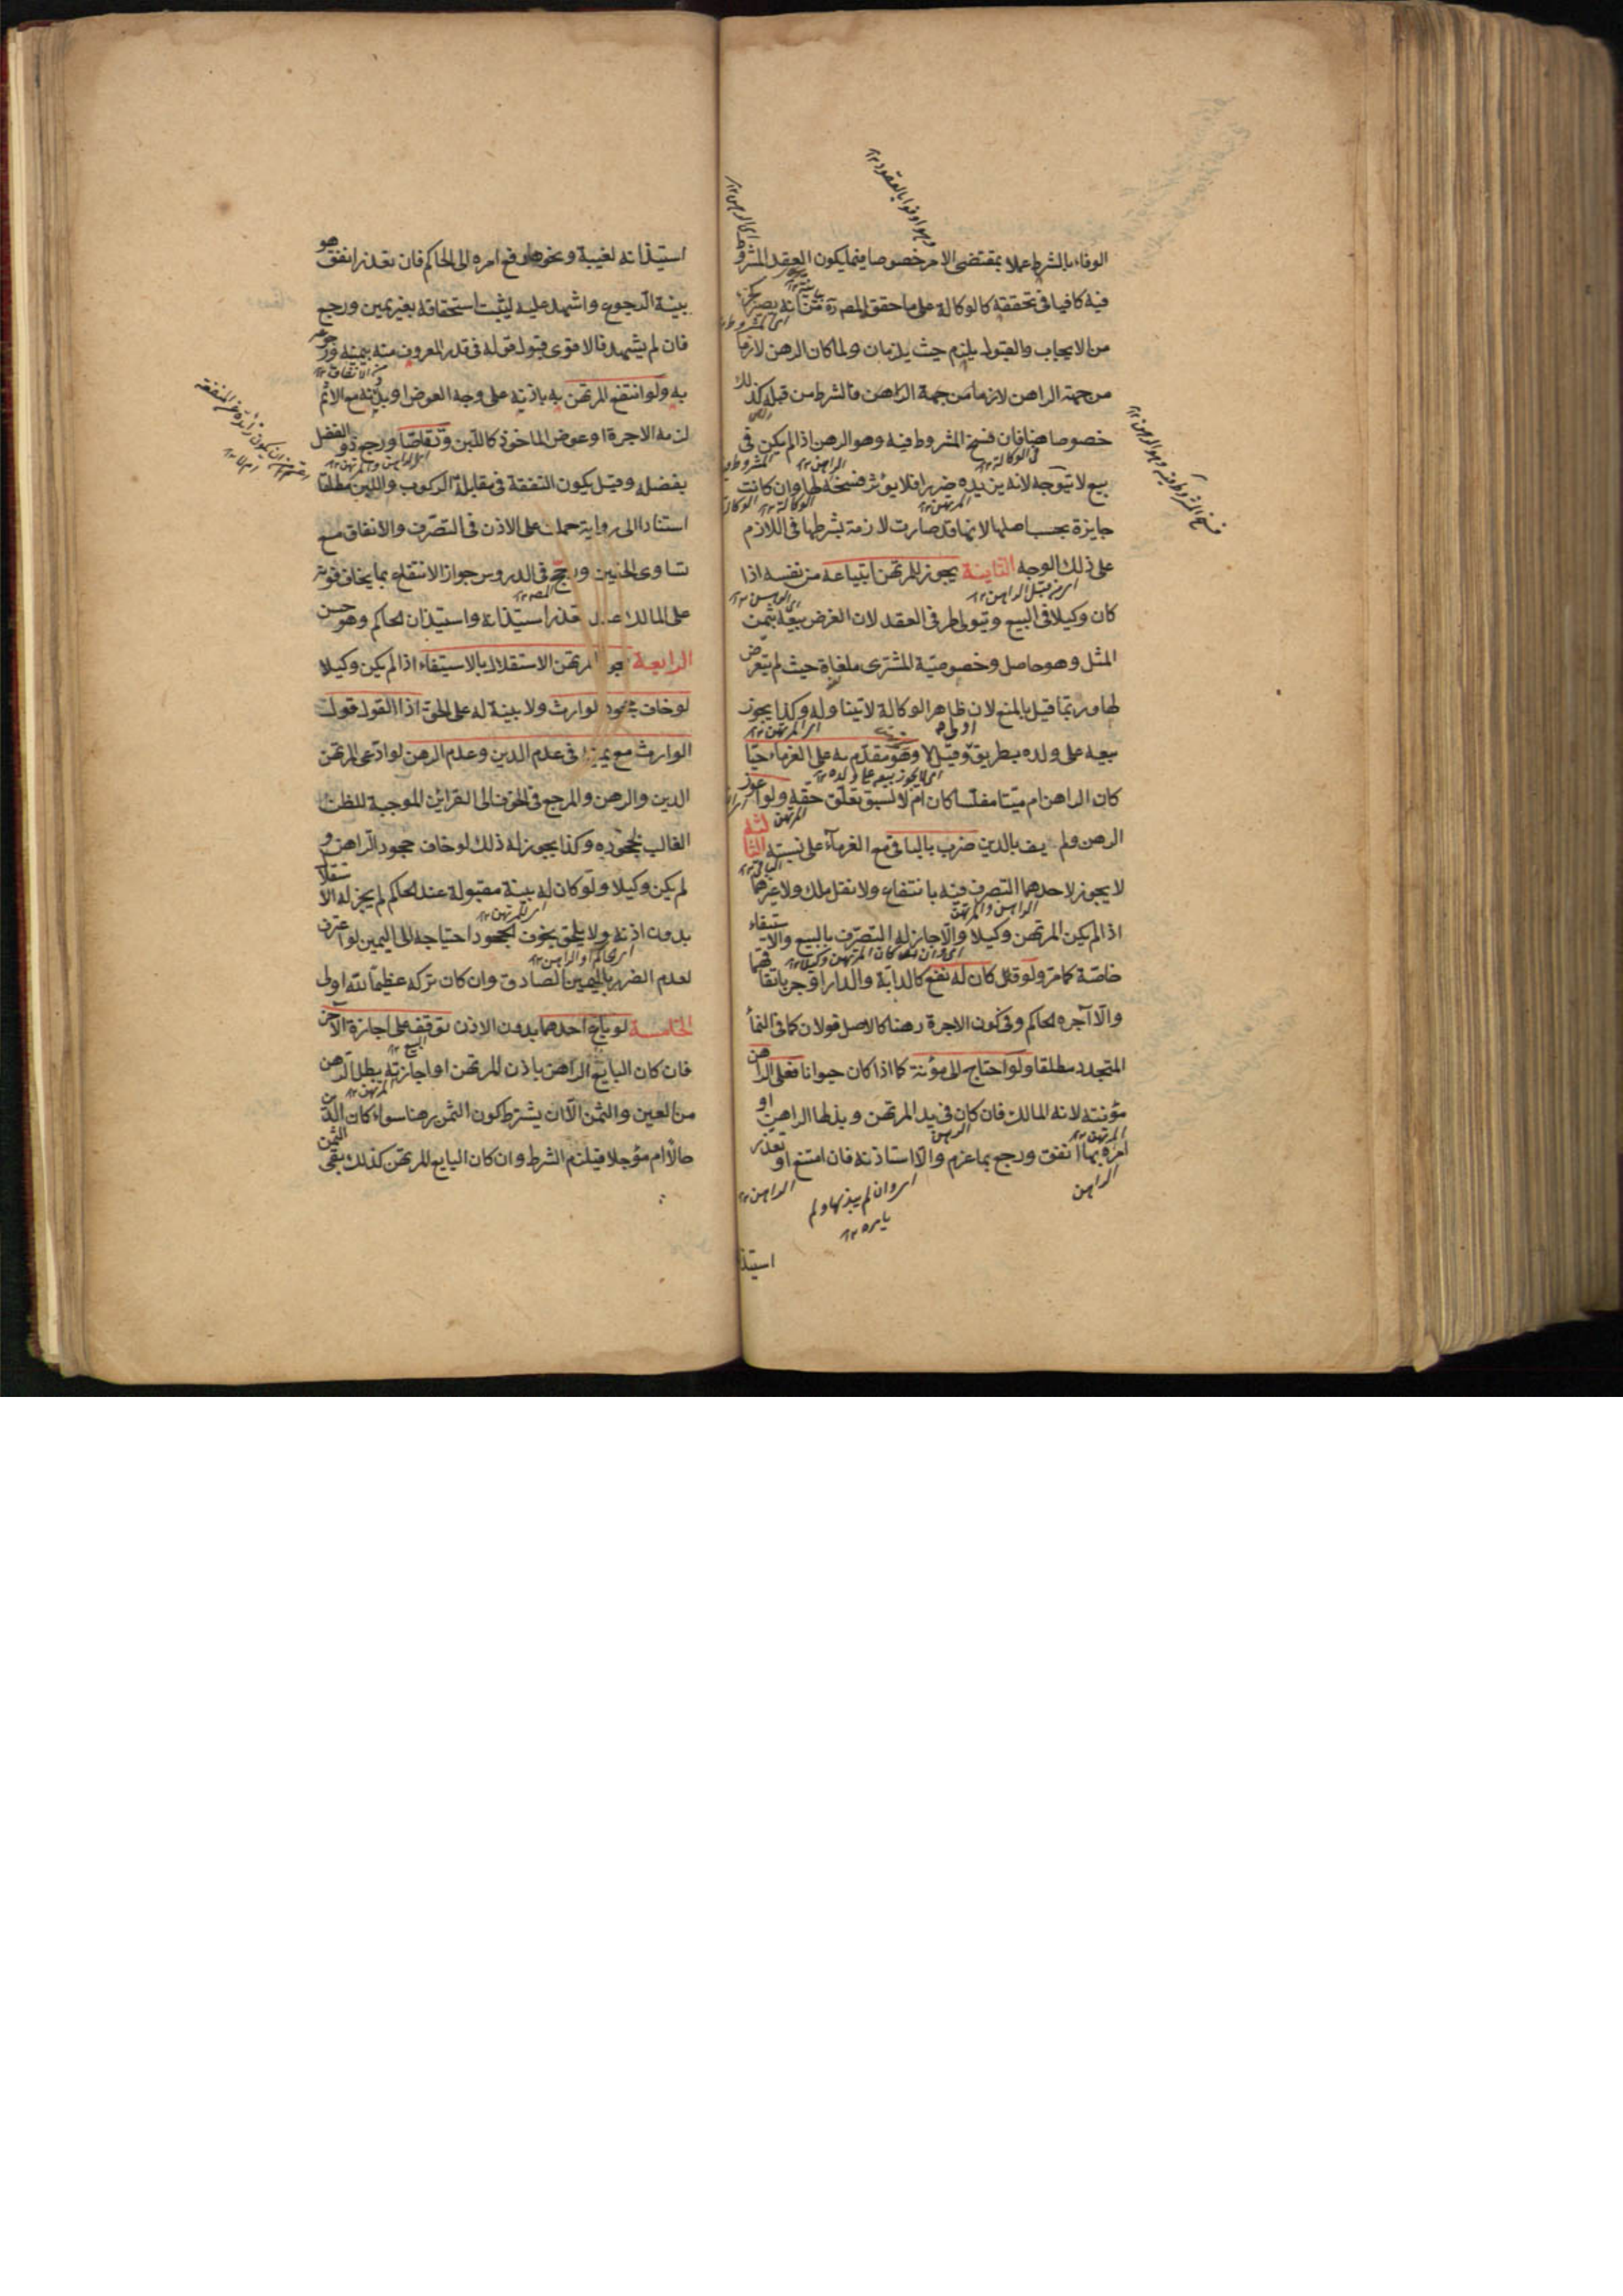 الوفاء بالشرط عملا بمقتضى الامر خصوصا فيما يكون العقد المشروط
فيه كافيا في تحققه كالوكالة على ما حقق المصره من انه يصير كجزء
من الايجاب والقبول يلزم حيث يلزمان ولما كان الرهن لازما
من جهة الراهن لازما من جهة الراهن فالشرط من قبله كذلك
خصوصا هنا فان فسخ المشروط فيه وهو الرهن اذا لم يكن في
بيع لا يتوجه لانه يزيده ضررا فلا يؤثر فسخه لها وان كانت
جايزة بحسب اصلها لانها قد صارت لازمة بشرطها في اللازم
على ذلك الوجه الثانية يجوز للمرتهن ابتياعه من نفسه اذا
كان وكيلا في البيع ويتولى طرفي العقد لان الغرض بيعه بثمن
المثل وهو حاصل وخصوصية المشترى ملغاة حيث لم يتعرض
لها وربما قيل بالمنع لان ظاهر الوكالة لا يتناوله وكذا يجوز
بيعه على ولده بطريق اولى وقيل لا وهو مقدم به على الغرماء حيا
كان الراهن ام ميتا مفلسا كان ام لا لسبق تعلق حقه ولو اعوز
الرهن ولم يف بالدين ضرب بالباقي مع الغرماء على نسبته الثالثة
لا يجوز لاحدهما التصرف فيه بانتفاع ولا نقل ملك ولا غيرهما
اذا لم يكن المرتهن وكيلا والا جاز له التصرف بالبيع والاستيفاء
خاصة كما مر ولو كان له نفع كالدابة والدار اوجر باتفاقهما
والا آجره الحاكم وفي كون الاجرة رهنا كالاصل قولان كما في النماء
المتجدد مطلقا ولو احتاج الى مؤنة كما اذا كان حيوانا فعلى الراهن
مؤنته لانه المالك فان كان في يد المرتهن وبذلها الراهن او
امره بها انفق ورجع بما غرم والا استاذنه فان امتنع او تعذر
استيذ
استيذانه لغيبة ونحوها رفع امره الى الحاكم فان تعذر انفق هو
بنية الرجوع واشهد عليه ليثبت استحقاقه بغير يمين ورجع
فان لم يشهد فالاقوى قبول قوله في قدر المعروف منه بيمينه ورجوعه
به ولو انتفع المرتهن به باذنه على وجه العوض او بدونه مع الاثم
لزمه الاجرة او عوض الماخوذ كاللبن وتقاصا ورجع ذو الفضل
بفضله وقيل يكون النفقة في مقابلة الركوب واللبن مطلقا
استنادا الى رواية حملت على الاذن في التصرف والانفاق مع
تساوى الحقين ورجح في الدروس جواز الانتفاع بما يخاف فوته
على المالك عند تعذر استيذانه واستيذان الحاكم وهو حسن
الرابعة يجوز للمرتهن الاستقلال بالاستيفاء اذا لم يكن وكيلا
لو خاف جحود الوارث ولا بينة له على الحق اذا القول قول
الوارث مع يمينه في عدم الدين وعدم الرهن لو ادعى المرتهن
الدين والرهن والمرجع في الخوف الى القراين الموجبة للظن
الغالب بجحوده وكذا يجوز له ذلك لو خاف جحود الراهن و
لم يكن وكيلا ولو كان له بينة مقبولة عند الحاكم لم يجز له الاستقلال
بدون اذنه ولا يلحق بخوف الجحود احتياجه الى اليمين لو اعترف
لعدم الضرر باليمين الصادق وان كان تركه عظيما لله اولى
الخامسة لو باع احدهما بدون الاذن توقف على اجازة الآخر
فان كان البايع الراهن باذن المرتهن او اجازته بطل الرهن
من العين والثمن الا ان يشترط كون الثمن رهنا سواء كان الدين
حالا ام مؤجلا فيلزم الشرط وان كان البايع المرتهن كذلك بقى الثمن